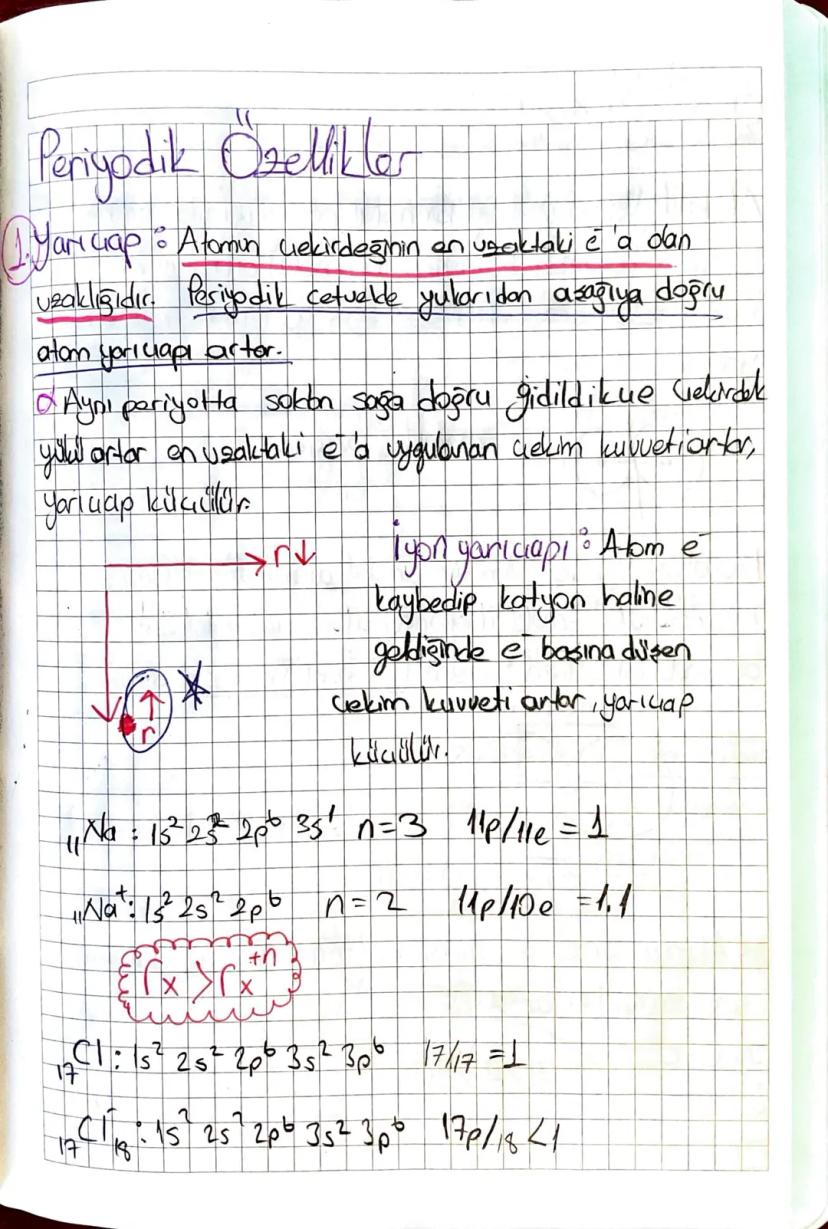 Periyodik Özellikler
1. Yarıçap : Atomun çekirdeğinin en uzaktaki e⁻'a olan
uzaklığıdır. Periyodik cetvelde yukarıdan aşağıya doğru
atom yarıçapı artar.
α Aynı periyotta soldan sağa doğru gidildikçe çekirdek
yükü artar en uzaktaki e⁻'a uygulanan çekim kuvveti artar,
yarıçap küçülür.
→ r↓
İyon yarıçapı : Atom e⁻
kaybedip katyon haline
geldiğinde e⁻ başına düşen
çekim kuvveti artar, yarıçap
küçülür.
↓ ↑ r
₁₁Na : 1s² 2s² 2p⁶ 3s¹ n=3 11p/11e = 1
₁₁Na⁺: 1s² 2s² 2p⁶ n=2 11p/10e =1.1
rₓ > rₓ⁺ⁿ
₁₇Cl : 1s² 2s² 2p⁶ 3s² 3p⁶ 17/17 =1
₁₇Cl⁻₁₈ : 1s² 2s² 2p⁶ 3s² 3p⁶ 17p/18 <1